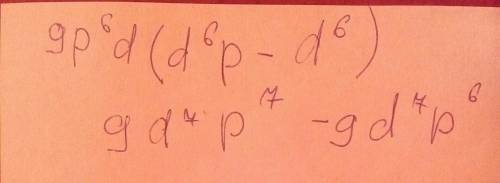 gp⁶d(d⁶p - d⁶)
gd⁷p⁷ -gd⁷p⁶